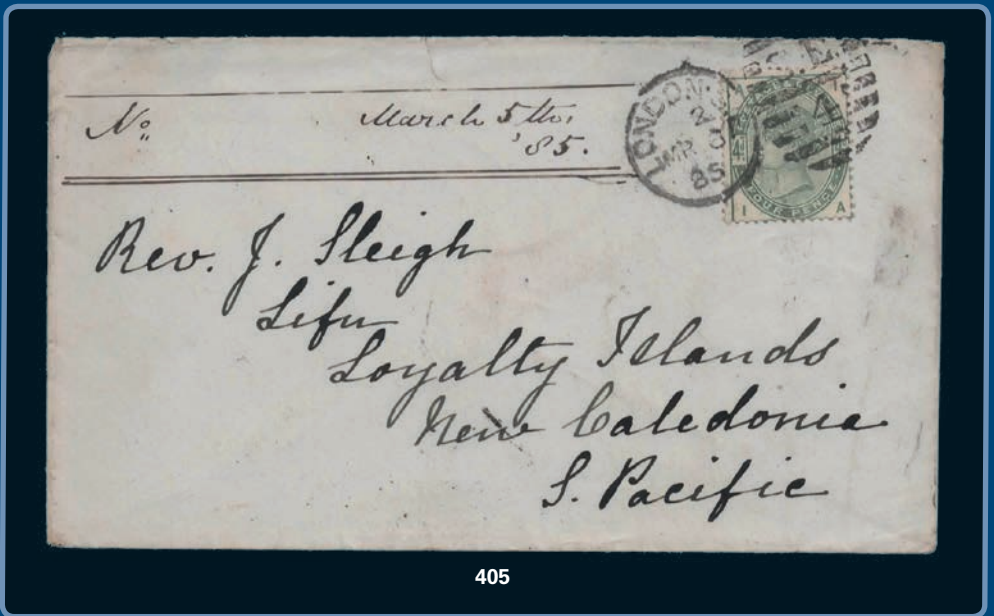 No
March 5th,
'85.
LONDON. S
MR 6
85
4
FOUR PENCE
I A
Rev. J. Sleigh
Lifu
Loyalty Islands
New Caledonia
S. Pacific
405